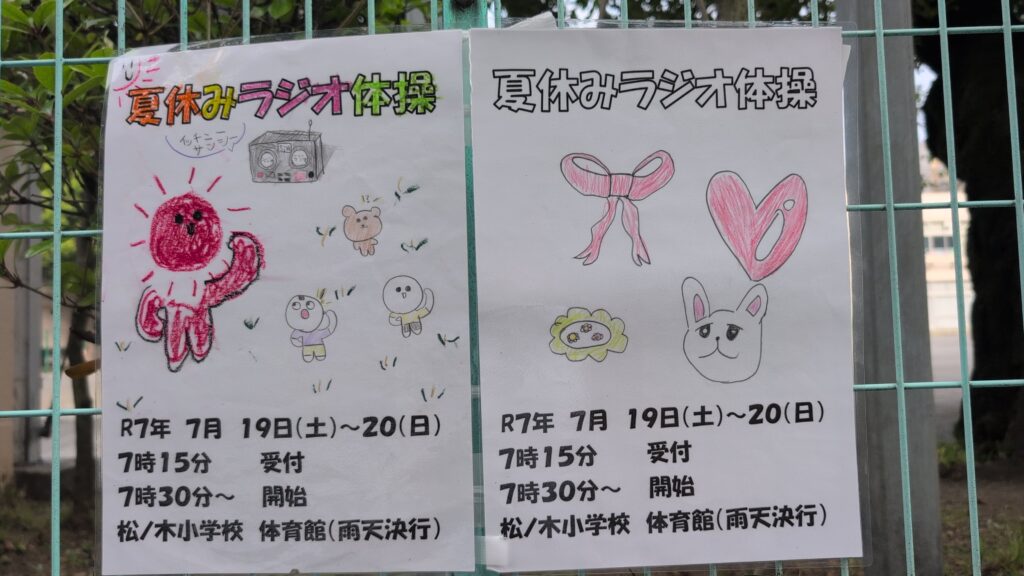 夏休みラジオ体操
イッチニー
サンシー
R7年 7月 19日(土)～20(日)
7時15分 受付
7時30分～ 開始
松ノ木小学校 体育館(雨天決行)
夏休みラジオ体操
R7年 7月 19日(土)～20(日)
7時15分 受付
7時30分～ 開始
松ノ木小学校 体育館(雨天決行)